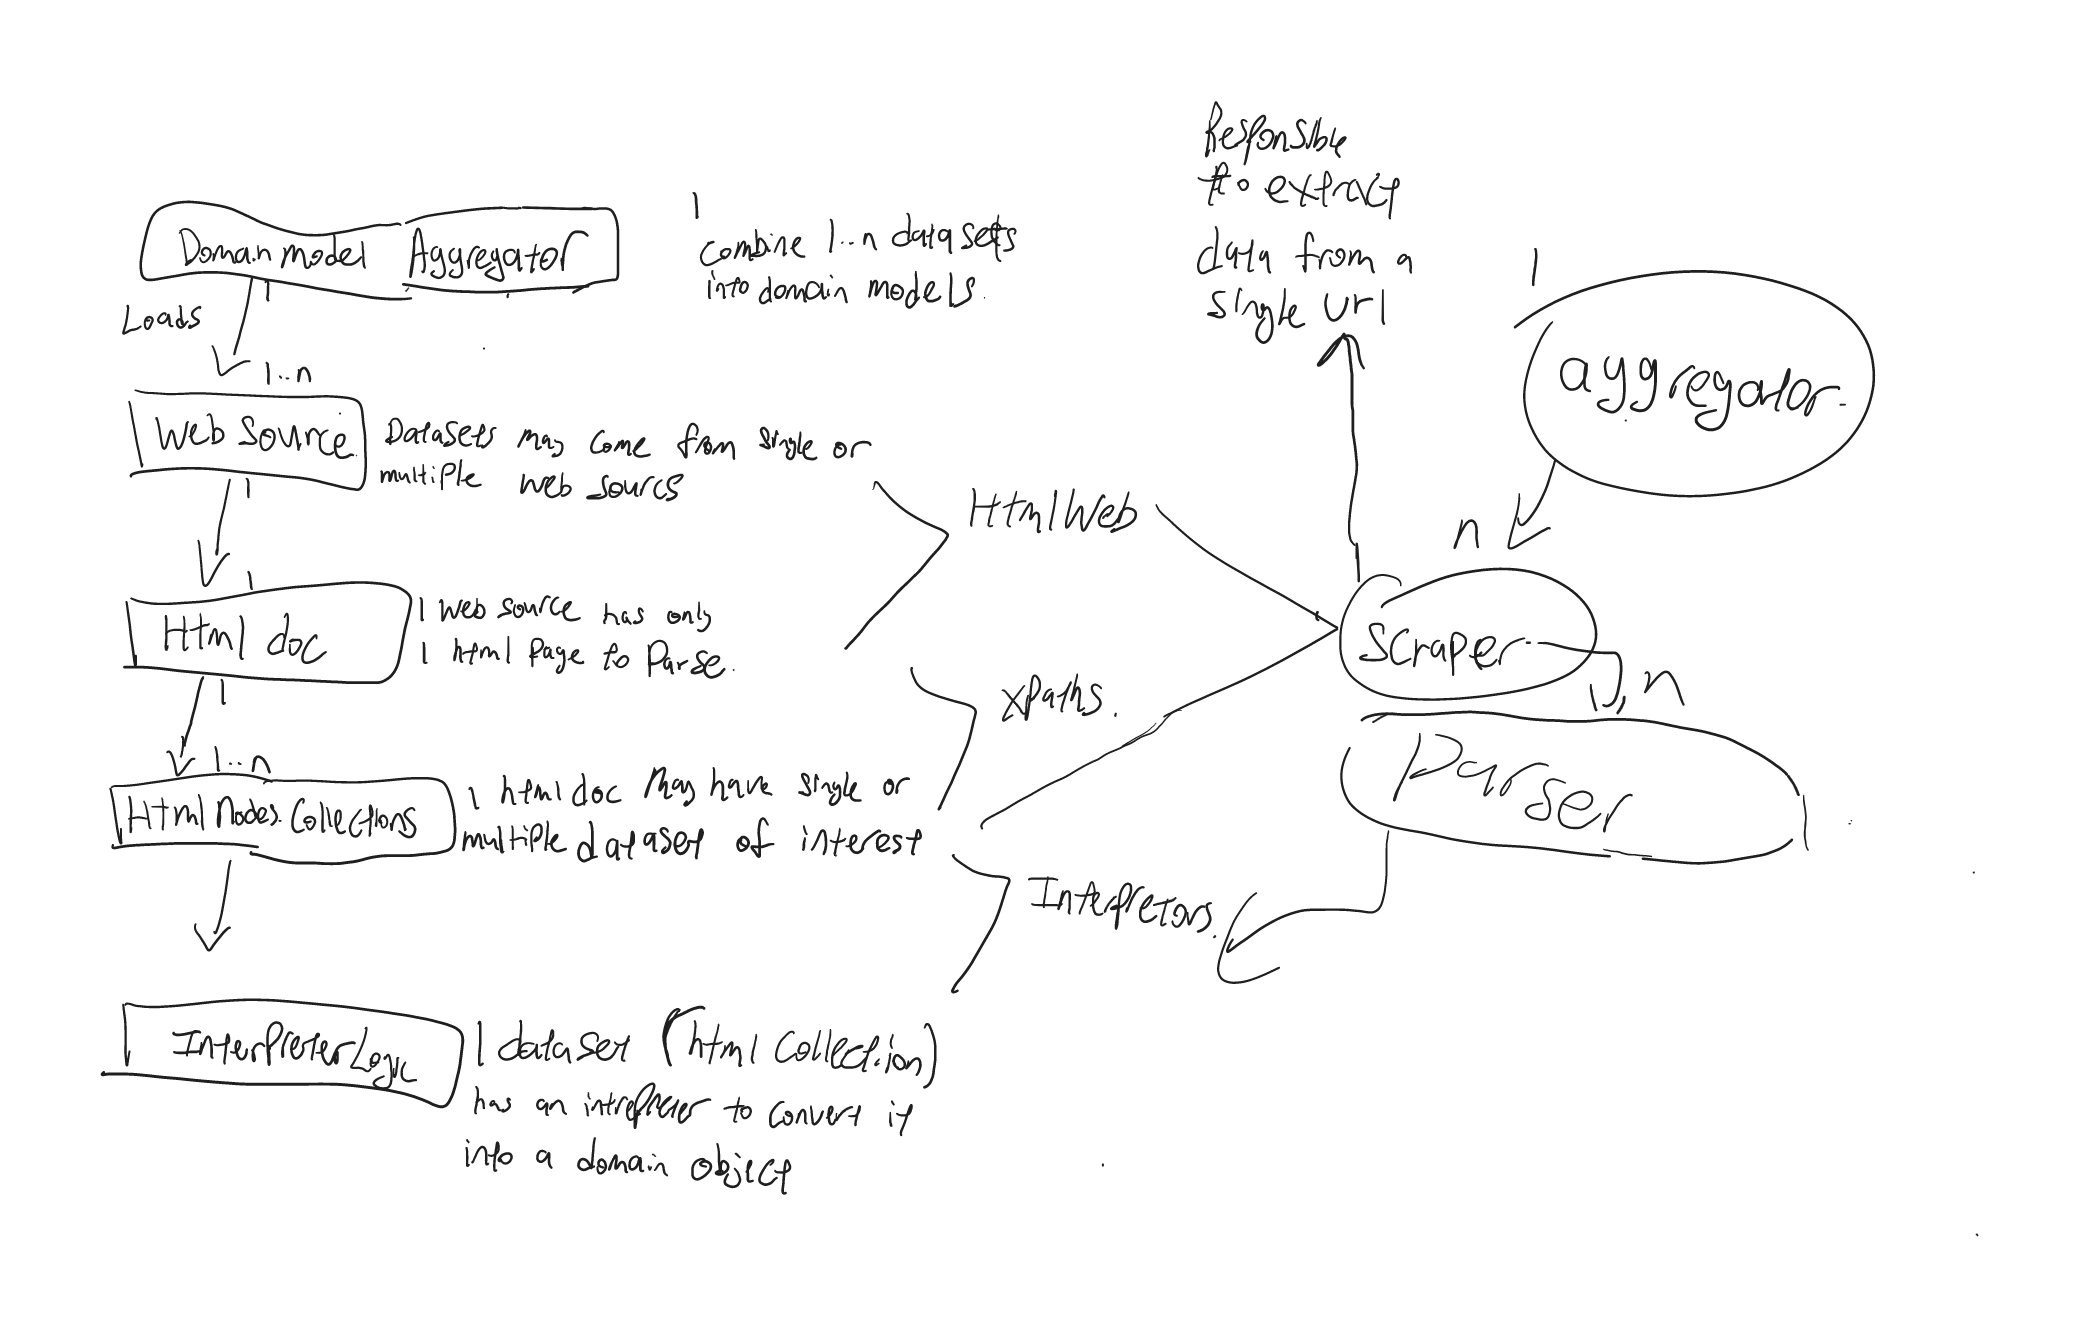 Doman model Aggregator
1
Loads
1..n
1
combine 1..n datasets
into domain models.
Web Source
1
Datasets may come from single or
multiple web sourcs
1
Html doc
1
1 web source has only
1 html page to Parse.
1..n
Html Nodes Collections
1 html doc may have single or
multiple dataset of interest
Interpreter Logic
1 dataset (html collection)
has an intrepreter to convert it
into a domain object
HtmlWeb
XPaths.
Interpretors.
Responsible
to extract
data from a
single url
1
aggregator.
n
scraper
1, n
Parser